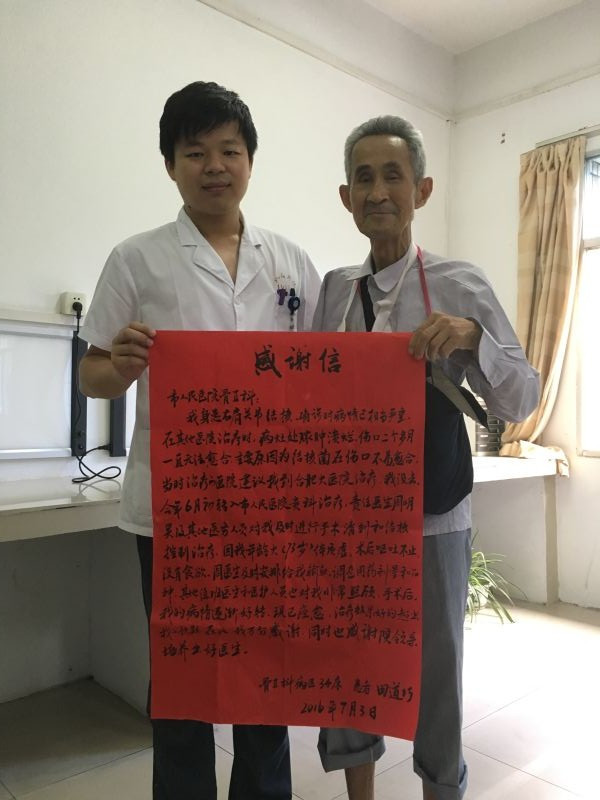 感谢信
市人民医院骨五科：
我身患右肩关节结核，确诊时病情已相当严重，
在其他医院治疗时，病灶处球肿溃烂，伤口二个多月
一直无法愈合，主要原因为结核菌在伤口不易愈合，
当时治疗医院建议我到合肥大医院治疗，我没去，
今年6月初转入市人民医院骨科治疗，责任医生周明
昊及其他医务人员对我及时进行手术清创和结核
控制治疗，因我年龄大（73岁）体质虚，术后呕吐不止
没有食欲，周医生及时安排给我输液，调包用药利
其他值班医生和医护人员也对我非常照顾，手术后，
我的病情逐渐好转，现已痊愈，治疗效果好的
感谢，同时也感谢院领导
培养出好医生。
骨五科病区34床 患者 田道巧
2016年7月3日